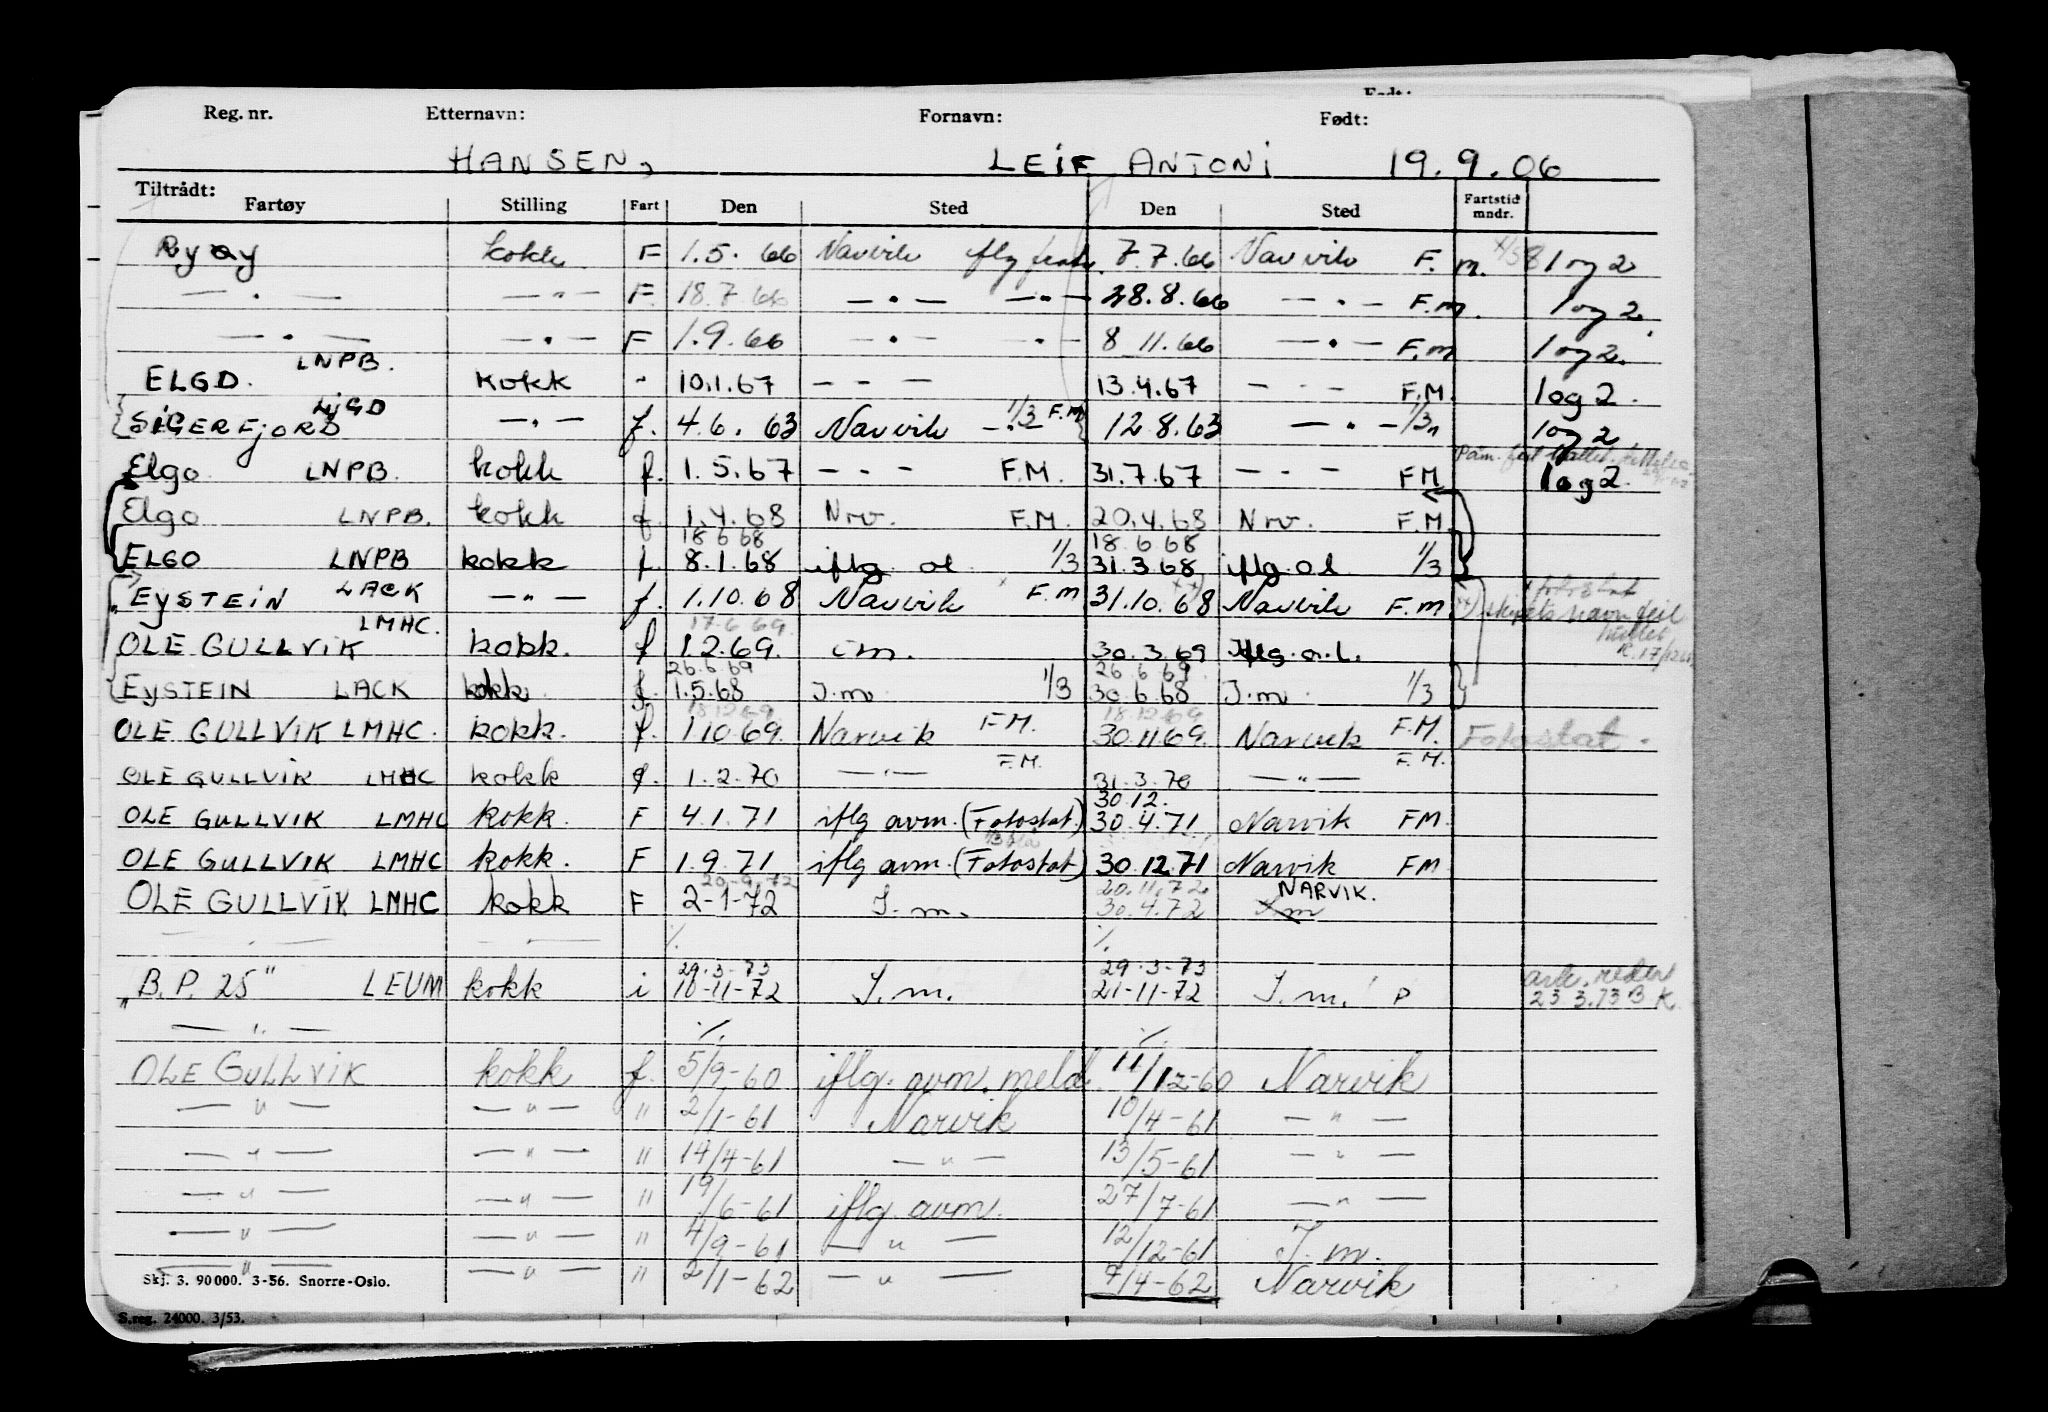 Født:
Reg. nr. Etternavn: Fornavn: Født:
HANSEN, LEIF ANTONI 19.9.06
Tiltrådt:
Fartøy Stilling Fart Den Sted Den Sted Fartstid mndr.
Ryøy kokk F 1.5.66 Narvik iflg 7.7.66 Narvik F.m. 1 og 2
— " — — " — F. 18.7.66 — " — — " — 28.8.66 — " — F.m. 1 og 2
— " — — " — F 1.9.66 — " — — " — 8.11.66 — " — F.m 1 og 2.
ELGO. LNPB. kokk " 10.1.67 — — — 13.4.67 — — — F.M. 1 og 2.
SIGERFJORD LJGD — " — f. 4.6.63 Narvik — " — 1/3 F.M 12.8.63 — " — 1/3 1 og 2
Elgo LNPB. kokk f. 1.5.67 — — — F.M. 31.7.67 — — — FM 1 og 2.
Elgo LNPB. kokk f. 1.4.68 Nrv. F.M. 20.4.68 Nrv. F.M.
18 6 68 18.6 68
ELGO LNPB kokk f. 8.1.68 iflg ol 1/3 31.3.68 iflg. ol 1/3
"EYSTEIN LACK — " — f. 1.10.68 Narvik F.m 31.10.68 Narvik F.m skipets navn feil
17.6 69
OLE GULLVIK LMHC. kokk. f 1.2.69. i m. 30.3.69 Iflg. o. l.
26.6.69 26 6 69
EYSTEIN LACK kokk f. 1.5.68 I.m. 1/3 30.6.68 I.m. 1/3
18.12 69 18.12.69
OLE GULLVIK LMHC. kokk. f. 1.10.69. Narvik F.M. 30.11.69. Narvik F.M. Fotostat.
OLE GULLVIK LMHC kokk f. 1.2.70 — " — F.M. 31.3.70 — " — F.M.
30.12.
OLE GULLVIK LMHC kokk. F 4.1.71 iflg avm. (Fotostat.) 30.4.71 Narvik FM.
OLE GULLVIK LMHC kokk. F 1.9.71 iflg avm. (Fotostat) 30.12.71 Narvik FM
20-9-72 20.11.72 NARVIK.
OLE GULLVIK LMHC kokk F 2-1-72 I.m. 30.4.72 I m
— " — — " — ./. ./.
29.3-73 29-3-73
"B.P. 25" LEUM kokk i 10-11-72 I.m. 21-11-72 I.m. P 23 3.73 B K.
— " — ./. ./.
OLE GULLVIK kokk f. 5/9-60 iflg. avm. meld. 11/12-60 Narvik
— " — — " — " 2/1-61 Narvik 10/4-61 — " —
— " — — " — " 14/4-61 — " — 13/5-61 — " —
— " — — " — " 19/6-61 iflg. avm. 27/7-61 — " —
— " — — " — " 4/9-61 — " — 12/12-61 I.m.
— " — — " — " 2/1-62 — " — 9/4-62 Narvik
Skj. 3. 90000. 3-56. Snorre-Oslo.
S.reg. 24000. 3/53.